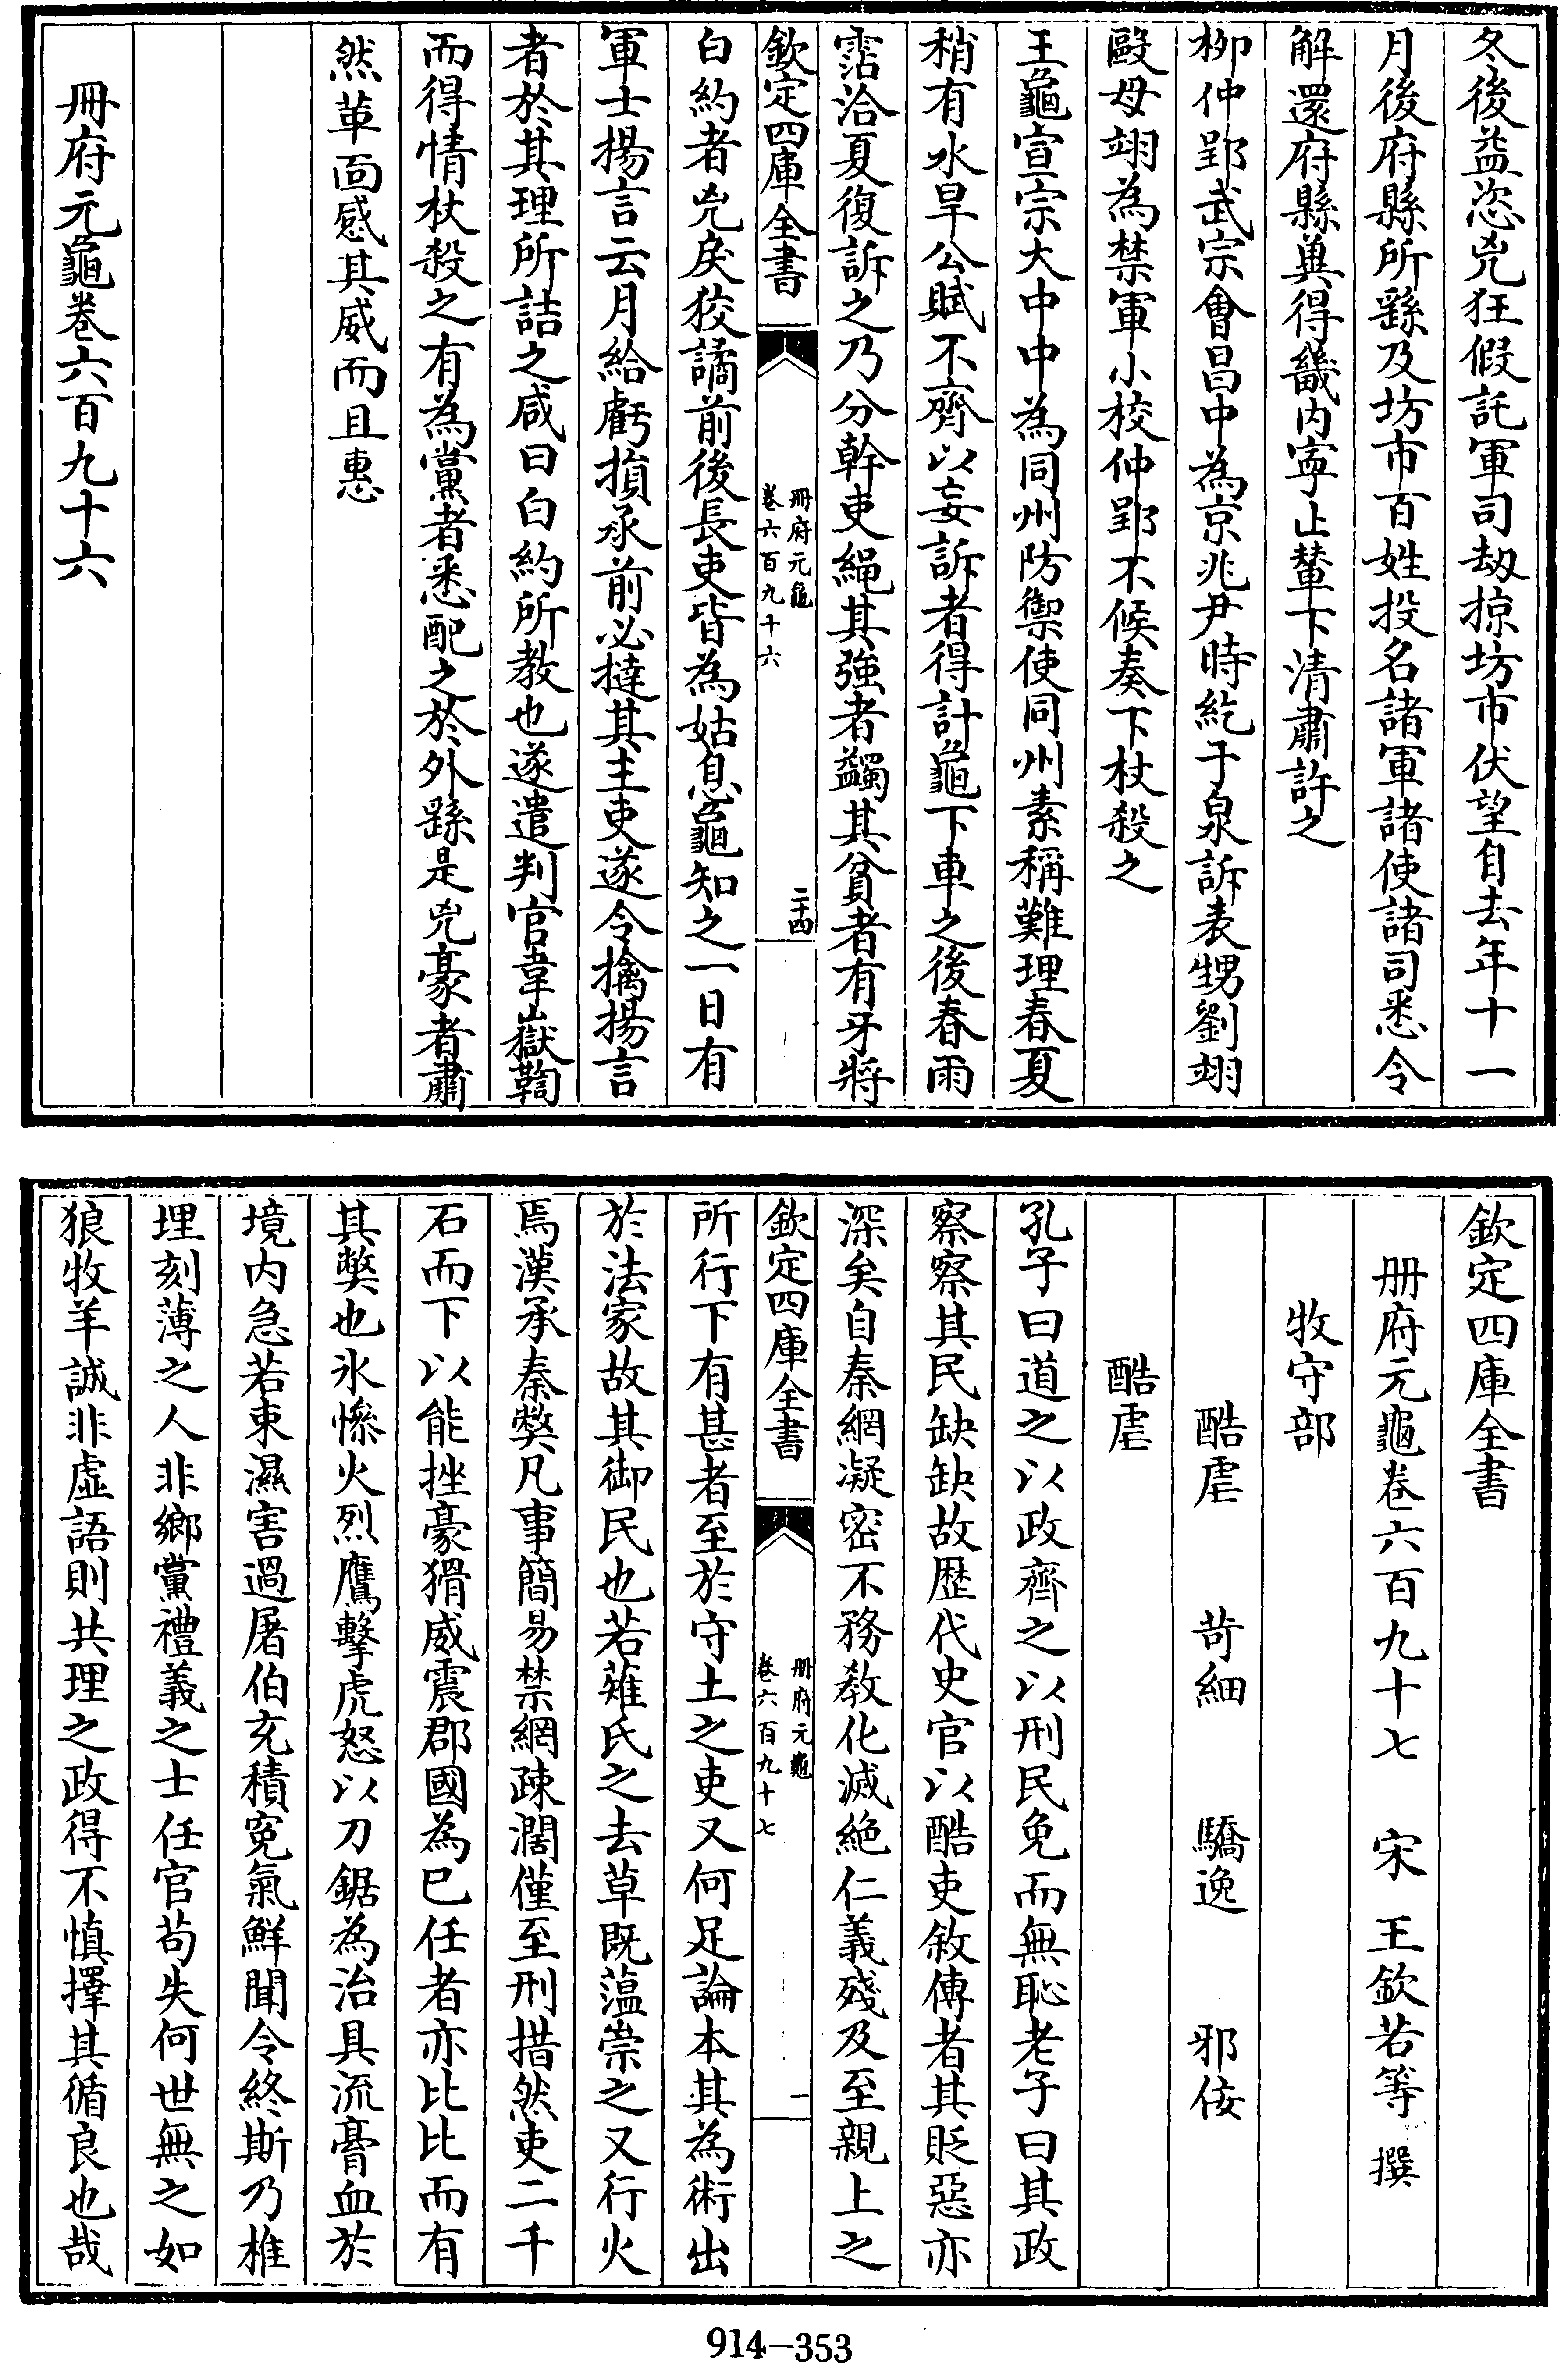 冬後益恣兇狂假託軍司刼掠坊市伏望自去年十一
月後府縣所繇及坊市百姓投名諸軍諸使諸司悉令
解還府縣兾得畿内寜止輦下清肅許之
栁仲郢武宗會昌中為京兆尹時紇干泉訴表甥劉翊
毆母翊為禁軍小校仲郢不候奏下杖殺之
王龜宣宗大中中為同州防禦使同州素稱難理春夏
稍有水旱公賦不齊以妄訴者得計龜下車之後春雨
霑洽夏復訴之乃分幹吏繩其強者蠲其貧者有牙將
欽定四庫全書
冊府元龜
卷六百九十六
二十四
白約者兇戾狡譎前後長吏皆為姑息龜知之一日有
軍士揚言云月給虧損承前必撻其主吏遂令擒揚言
者於其理所詰之咸曰白約所教也遂遣判官韋嶽鞫
而得情杖殺之有為黨者悉配之於外繇是兇豪者肅
然革面感其威而且惠
冊府元龜卷六百九十六
欽定四庫全書
冊府元龜卷六百九十七 宋 王欽若等 撰
牧守部
酷虐 苛細 驕逸 邪佞
酷虐
孔子曰道之以政齊之以刑民免而無恥老子曰其政
察察其民缺缺故歴代史官以酷吏敘傳者其貶惡亦
深矣自秦網凝密不務敎化滅絶仁義殘及至親上之
欽定四庫全書
冊府元龜
卷六百九十七
一
所行下有甚者至於守土之吏又何足論本其為術出
於法家故其御民也若薙氏之去草既藴崇之又行火
焉漢承秦獘凡事簡易禁網疎濶僅至刑措然吏二千
石而下以能挫豪猾威震郡國為已任者亦比比而有
其獘也氷慘火烈鷹擊虎怒以刀鋸為治具流膏血於
境内急若束濕害過屠伯充積寃氣鮮聞令終斯乃椎
埋刻薄之人非鄉黨禮義之士任官苟失何世無之如
狼牧羊誠非虛語則共理之政得不慎擇其循良也哉
914-353